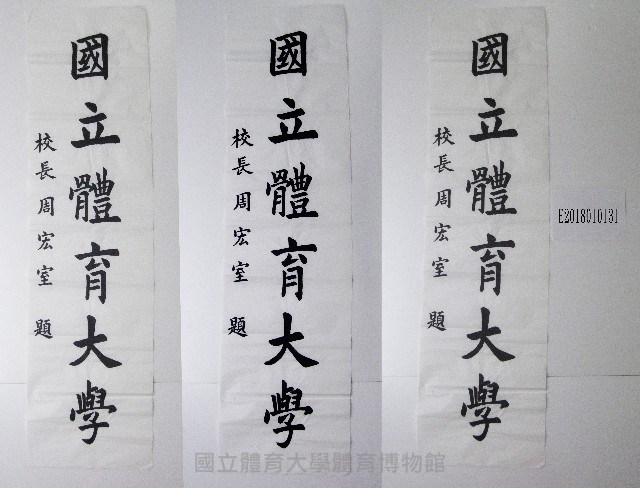 國立體育大學
校長周宏室 題
國立體育大學
校長周宏室 題
國立體育大學
校長周宏室 題
E2018010131
國立體育大學體育博物館